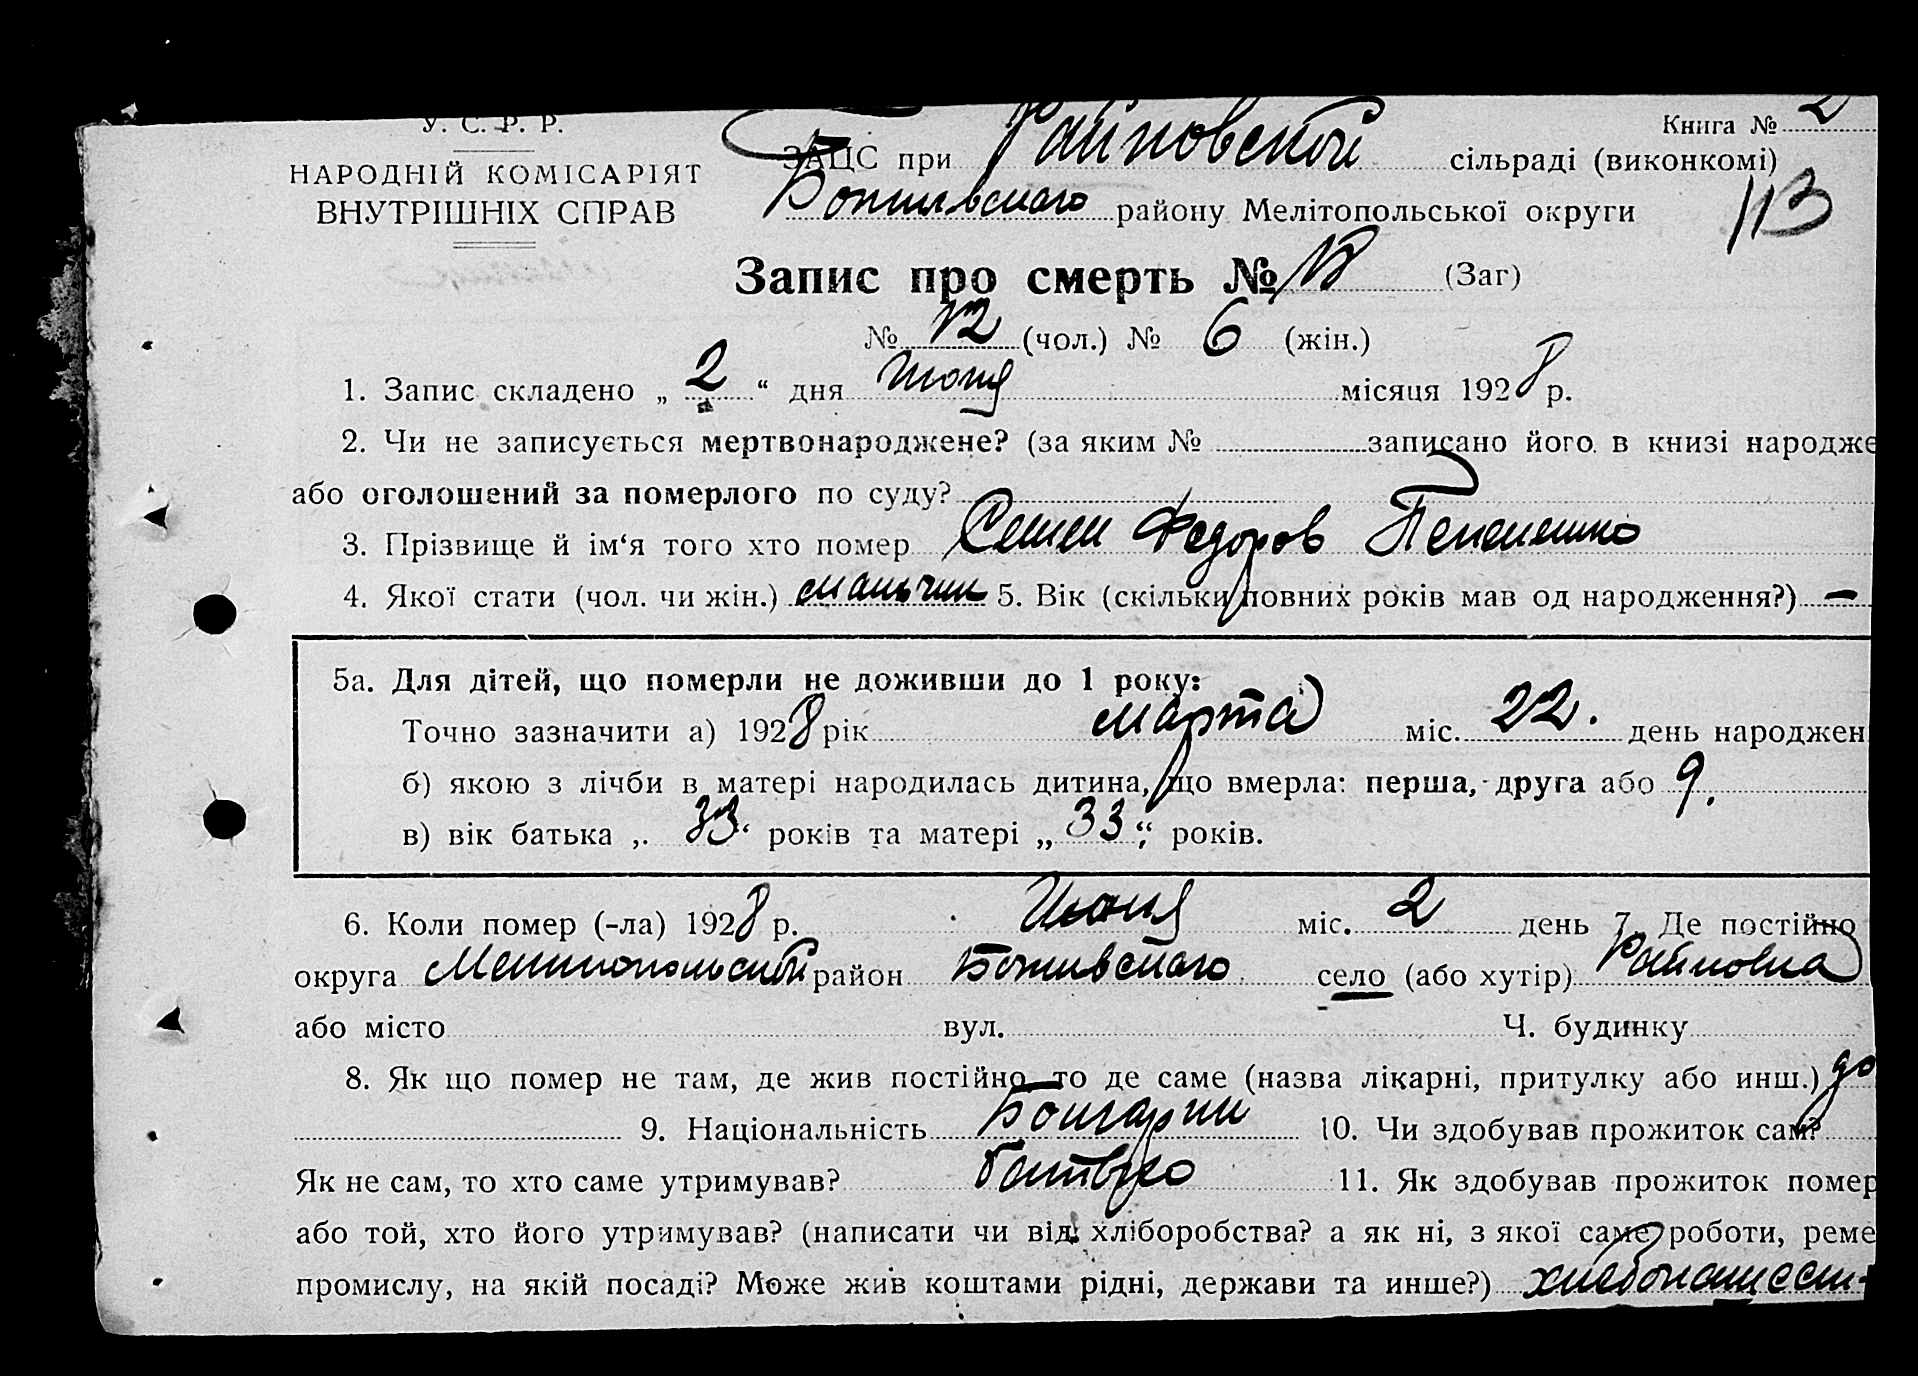 У. С. Р. Р.
НАРОДНІЙ КОМІСАРІЯТ
ВНУТРІШНІХ СПРАВ
Книга № 2
ЗАЦС при Райновской сільраді (виконкомі)
району Мелітопольської округи
113
Запис про смерть № (Заг)
№ 12 (чол.) № 6 (жін.)
1. Запис складено „ 2 “ дня Июня місяця 1928 р.
2. Чи не записується мертвонароджене? (за яким № записано його в книзі народже
або оголошений за померлого по суду?
3. Прізвище й ім‘я того хто помер Семен Федоров
4. Якої стати (чол. чи жін.) мальчик 5. Вік (скільки повних років мав од народження?) –
5а. Для дітей, що померли не доживши до 1 року:
Точно зазначити а) 1928 рік марта міс. 22. день народжен
б) якою з лічби в матері народилась дитина, що вмерла: перша, друга або 9.
в) вік батька „ 33 “ років та матері „ 33 “ років.
6. Коли помер (-ла) 1928 р. Июня міс. 2 день 7. Де постійно
округа Мелитопольской район село (або хутір) Райновка
або місто вул. Ч. будинку
8. Як що помер не там, де жив постійно то де саме (назва лікарні, притулку або инш.) до
9. Національність Болгарин 10. Чи здобував прожиток сам?
Як не сам, то хто саме утримував? 11. Як здобував прожиток помер
або той, хто його утримував? (написати чи від хліборобства? а як ні, з якої саме роботи, реме
промислу, на якій посаді? Може жив коштами рідні, держави та инше?) хлебопашест-